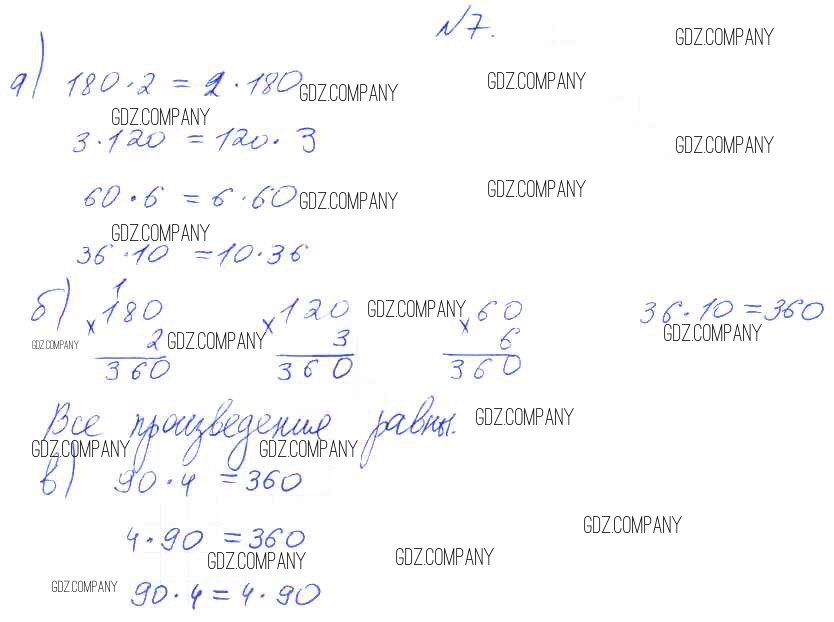 №7.
GDZ.COMPANY
а) 180·2 = 2·180 GDZ.COMPANY GDZ.COMPANY
GDZ.COMPANY
3·120 = 120·3 GDZ.COMPANY
60·6 = 6·60 GDZ.COMPANY GDZ.COMPANY
GDZ.COMPANY
36·10 = 10·36
б) 1
×180 ×120 GDZ.COMPANY ×60 36·10 = 360
GDZ.COMPANY 2 GDZ.COMPANY 3 6 GDZ.COMPANY
360 360 360
Все произведения равны. GDZ.COMPANY
GDZ.COMPANY GDZ.COMPANY
в) 90·4 = 360
GDZ.COMPANY
4·90 = 360
GDZ.COMPANY GDZ.COMPANY
GDZ.COMPANY 90·4 = 4·90